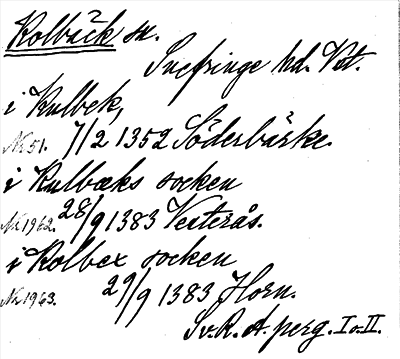 Kolbäck sn.
Snefringe hd. Vstm.
i Kulbek,
Nr 51. 7/2 1352 Söderbärke.
i Kulbæks socken
Nr 1962. 28/9 1383 Vesterås.
i Kolbex socken
Nr 1963. 29/9 1383 Horn.
Sv. R. A. perg. I o. II.